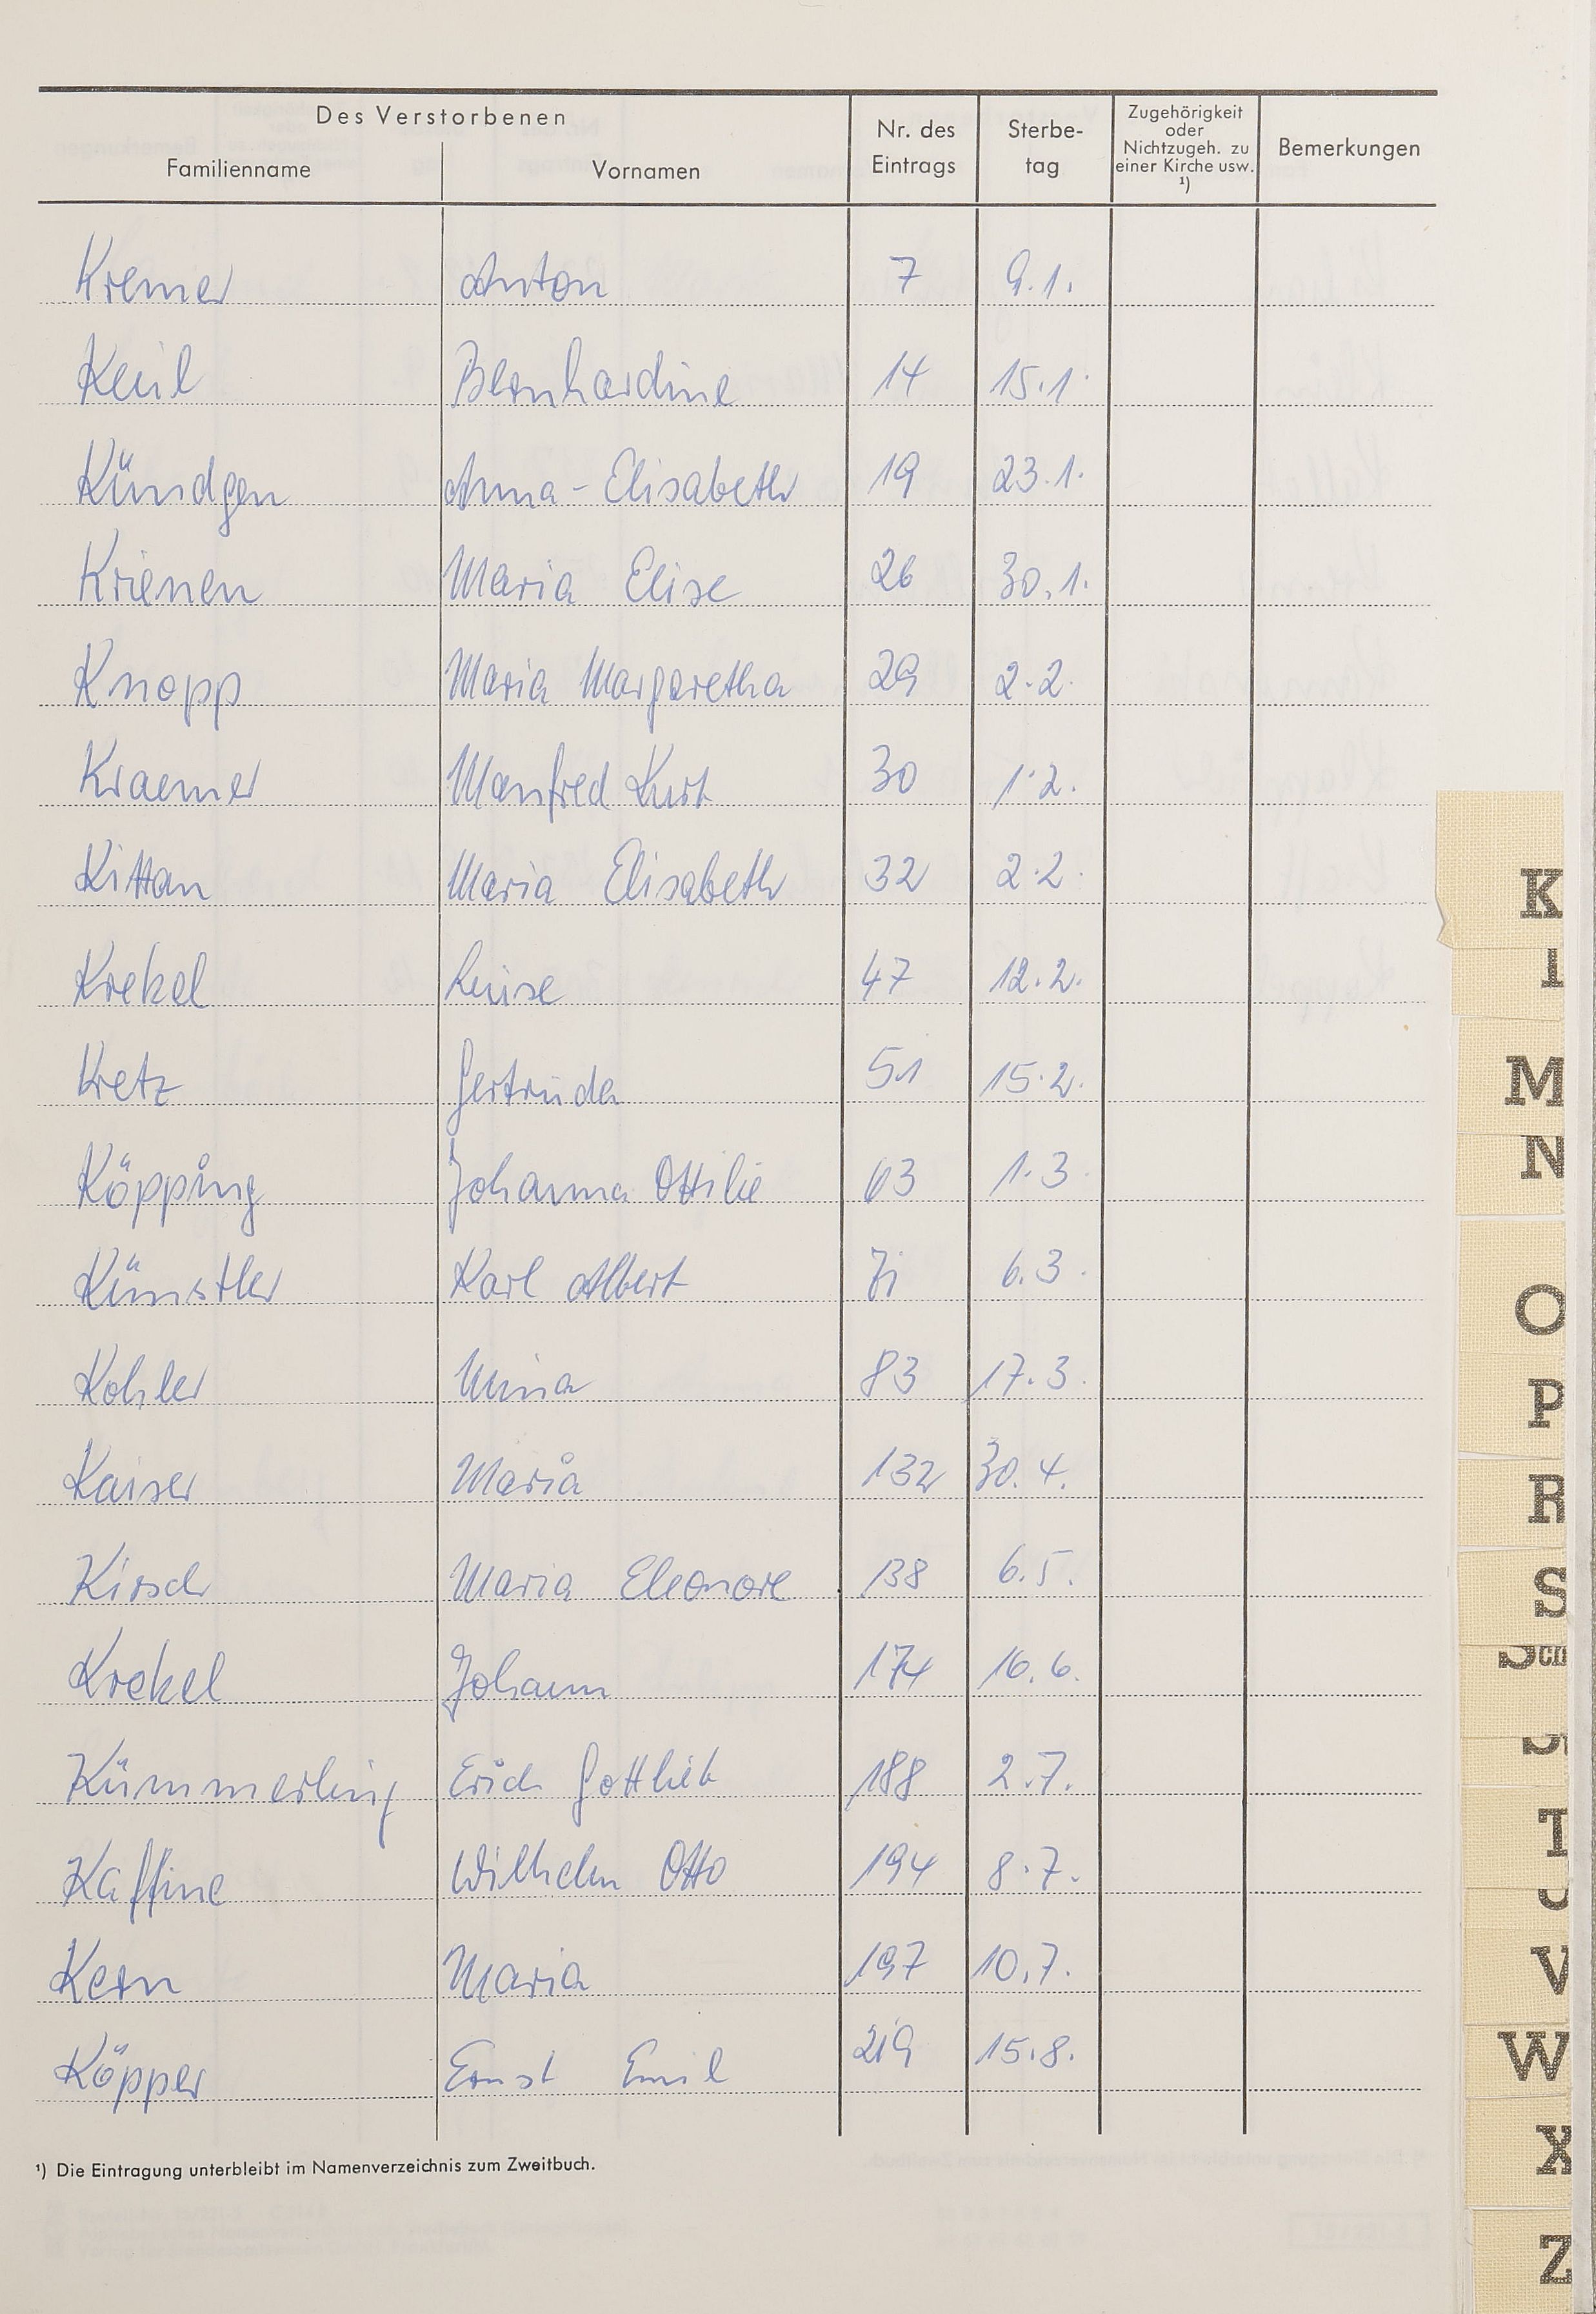 Des Verstorbenen
Familienname Vornamen Nr. des Eintrags Sterbe-tag Zugehörigkeit oder Nichtzugeh. zu einer Kirche usw. ¹) Bemerkungen
Kremer Anton 7 9.1.
Keil Bernhardine 14 15.1.
Kündgen Anna-Elisabeth 19 23.1.
Krienen Maria Elise 26 30.1.
Knopp Maria Margaretha 29 2.2.
Kraemer Manfred Kurt 30 1.2.
Kittan Maria Elisabeth 32 2.2.
Krekel Luise 47 12.2.
Kretz Gertruda 51 15.2.
Köpping Johanna Ottilie 63 1.3.
Künstler Karl Albert 71 6.3.
Kohler Mina 83 17.3.
Kaiser Maria 132 30.4.
Kirsch Maria Eleonore 138 6.5.
Krekel Johann 174 16.6.
Kümmerling Erich Gottlieb 188 2.7.
Kaffine Wilhelm Otto 194 8.7.
Kern Maria 197 10.7.
Köpper Ernst Emil 219 15.8.
¹) Die Eintragung unterbleibt im Namenverzeichnis zum Zweitbuch.
K
L
M
N
O
P
R
S
Sch
T
V
W
X
Z